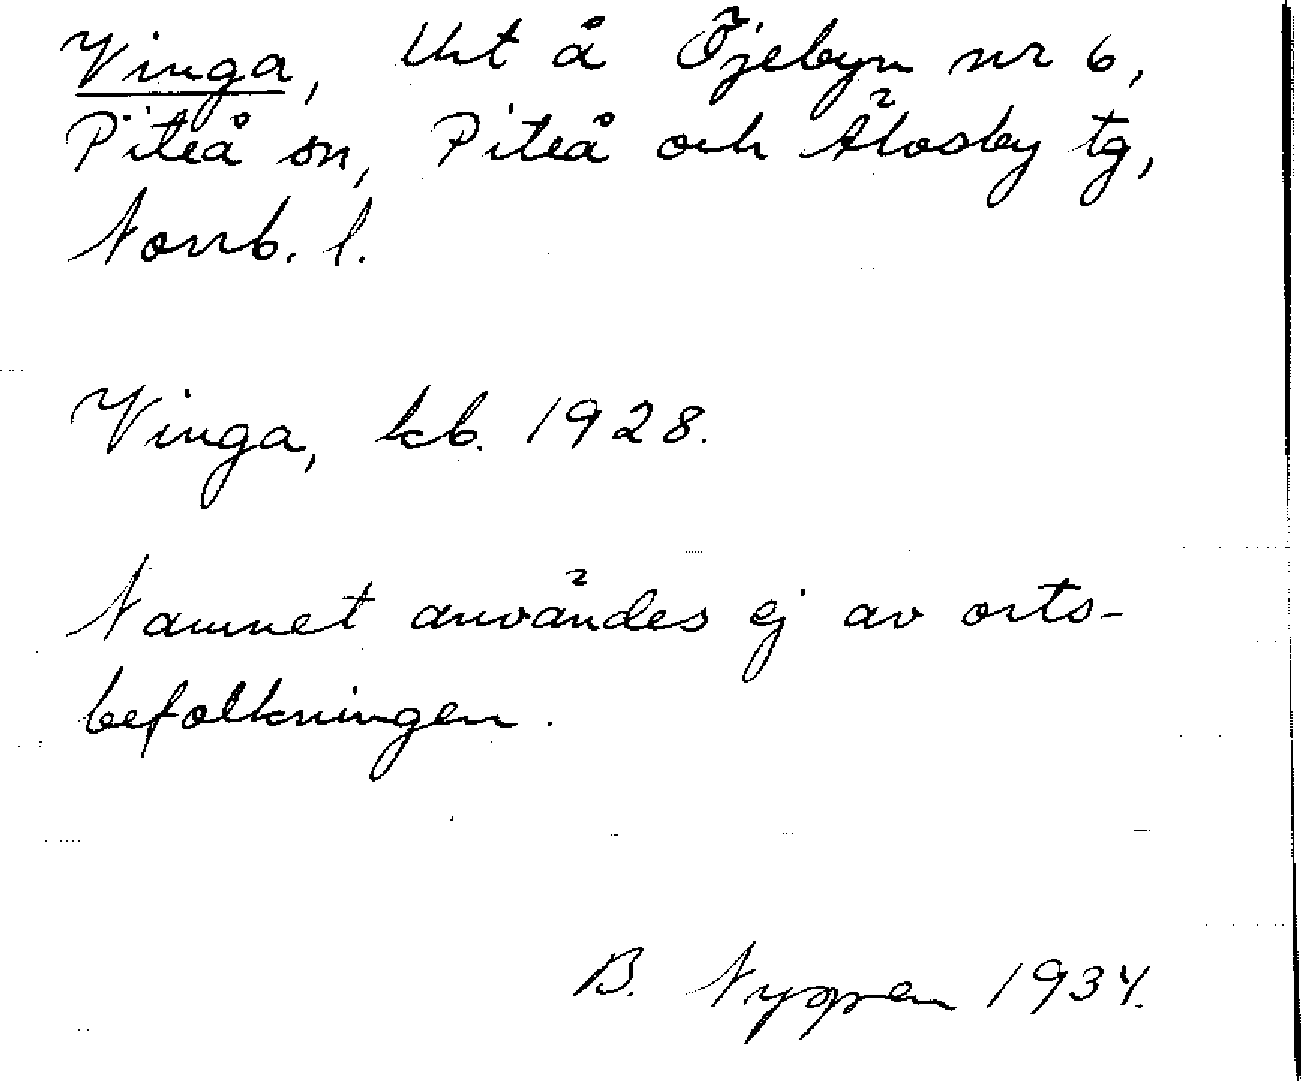 Vinga, Uht å Öjebyn nr 6,
Piteå sn, Piteå och Älvsby tg,
Norrb. l.
Vinga, kb. 1928.
Namnet användes ej av orts-
befolkningen.
B. Nygren 1934.